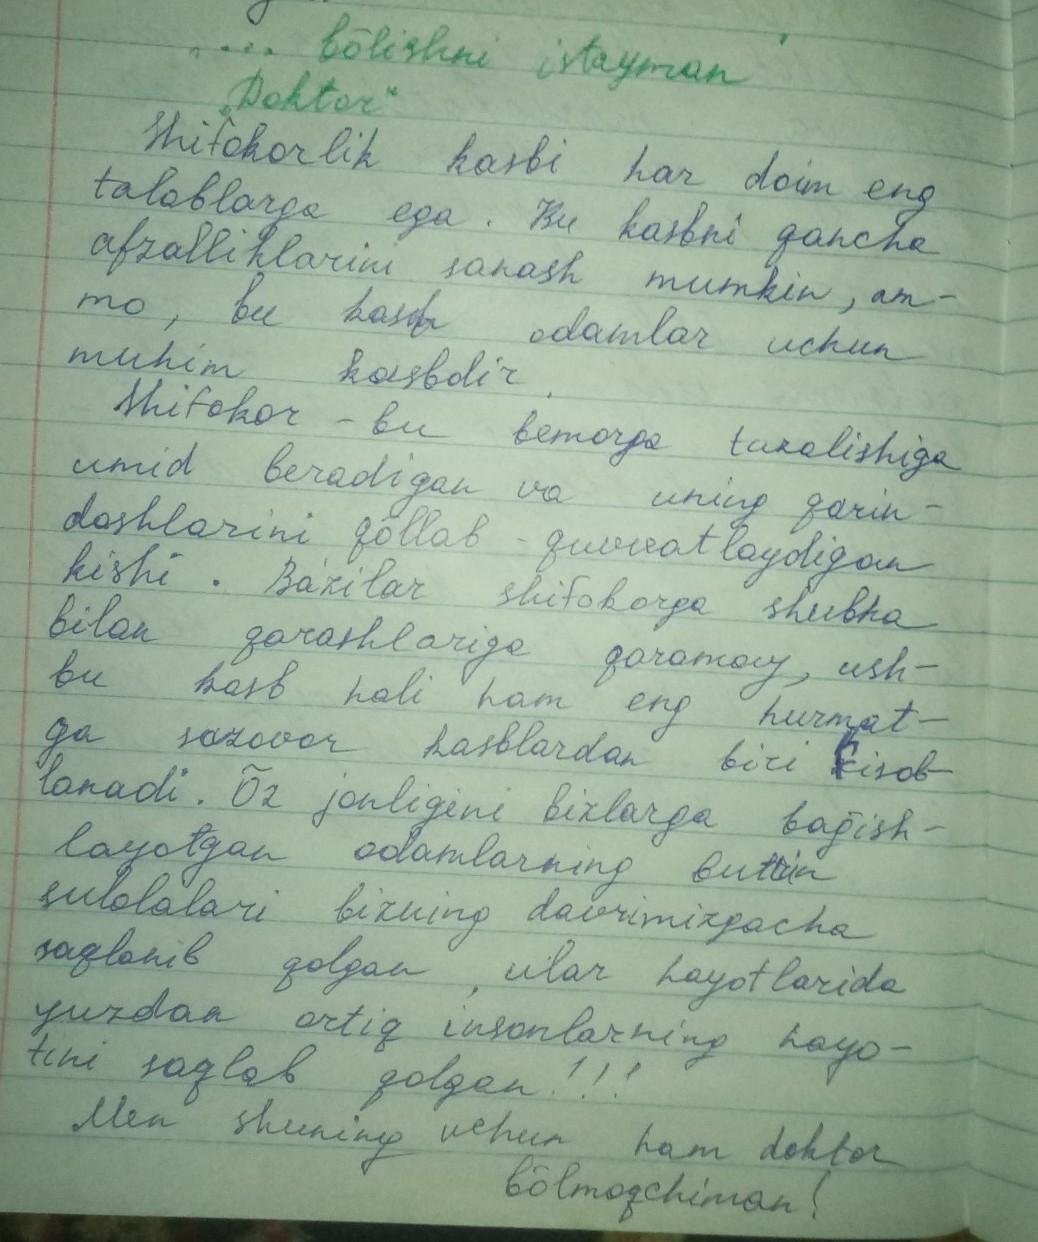 "... bōlishni istayman
„Doktor"
Shifokorlik kasbi har doim eng
talablarga ega. Bu kasbni qancha
afzalliklarini sanash mumkin, am-
mo, bu kasb odamlar uchun
muhim kasbdir.
Shifokor - bu bemorga tuzalishiga
umid beradigan va uning qarin-
doshlarini qōllab - quvvatlaydigan
kishi. Ba'zilar shifokorga shubha
bilan qarashlariga qaramay, ush-
bu kasb hali ham eng hurmat-
ga sazovor kasblardan biri hisob-
lanadi. Ōz jonligini bizlarga bag̃ish-
layotgan odamlarning butun
sulolalari bizning davrimizgacha
saqlanib qolgan, ular hayotlarida
yuzdan ortiq insonlarning hayo-
tini saqlab qolgan!!!
Men shuning uchun ham doktor
bōlmoqchiman!